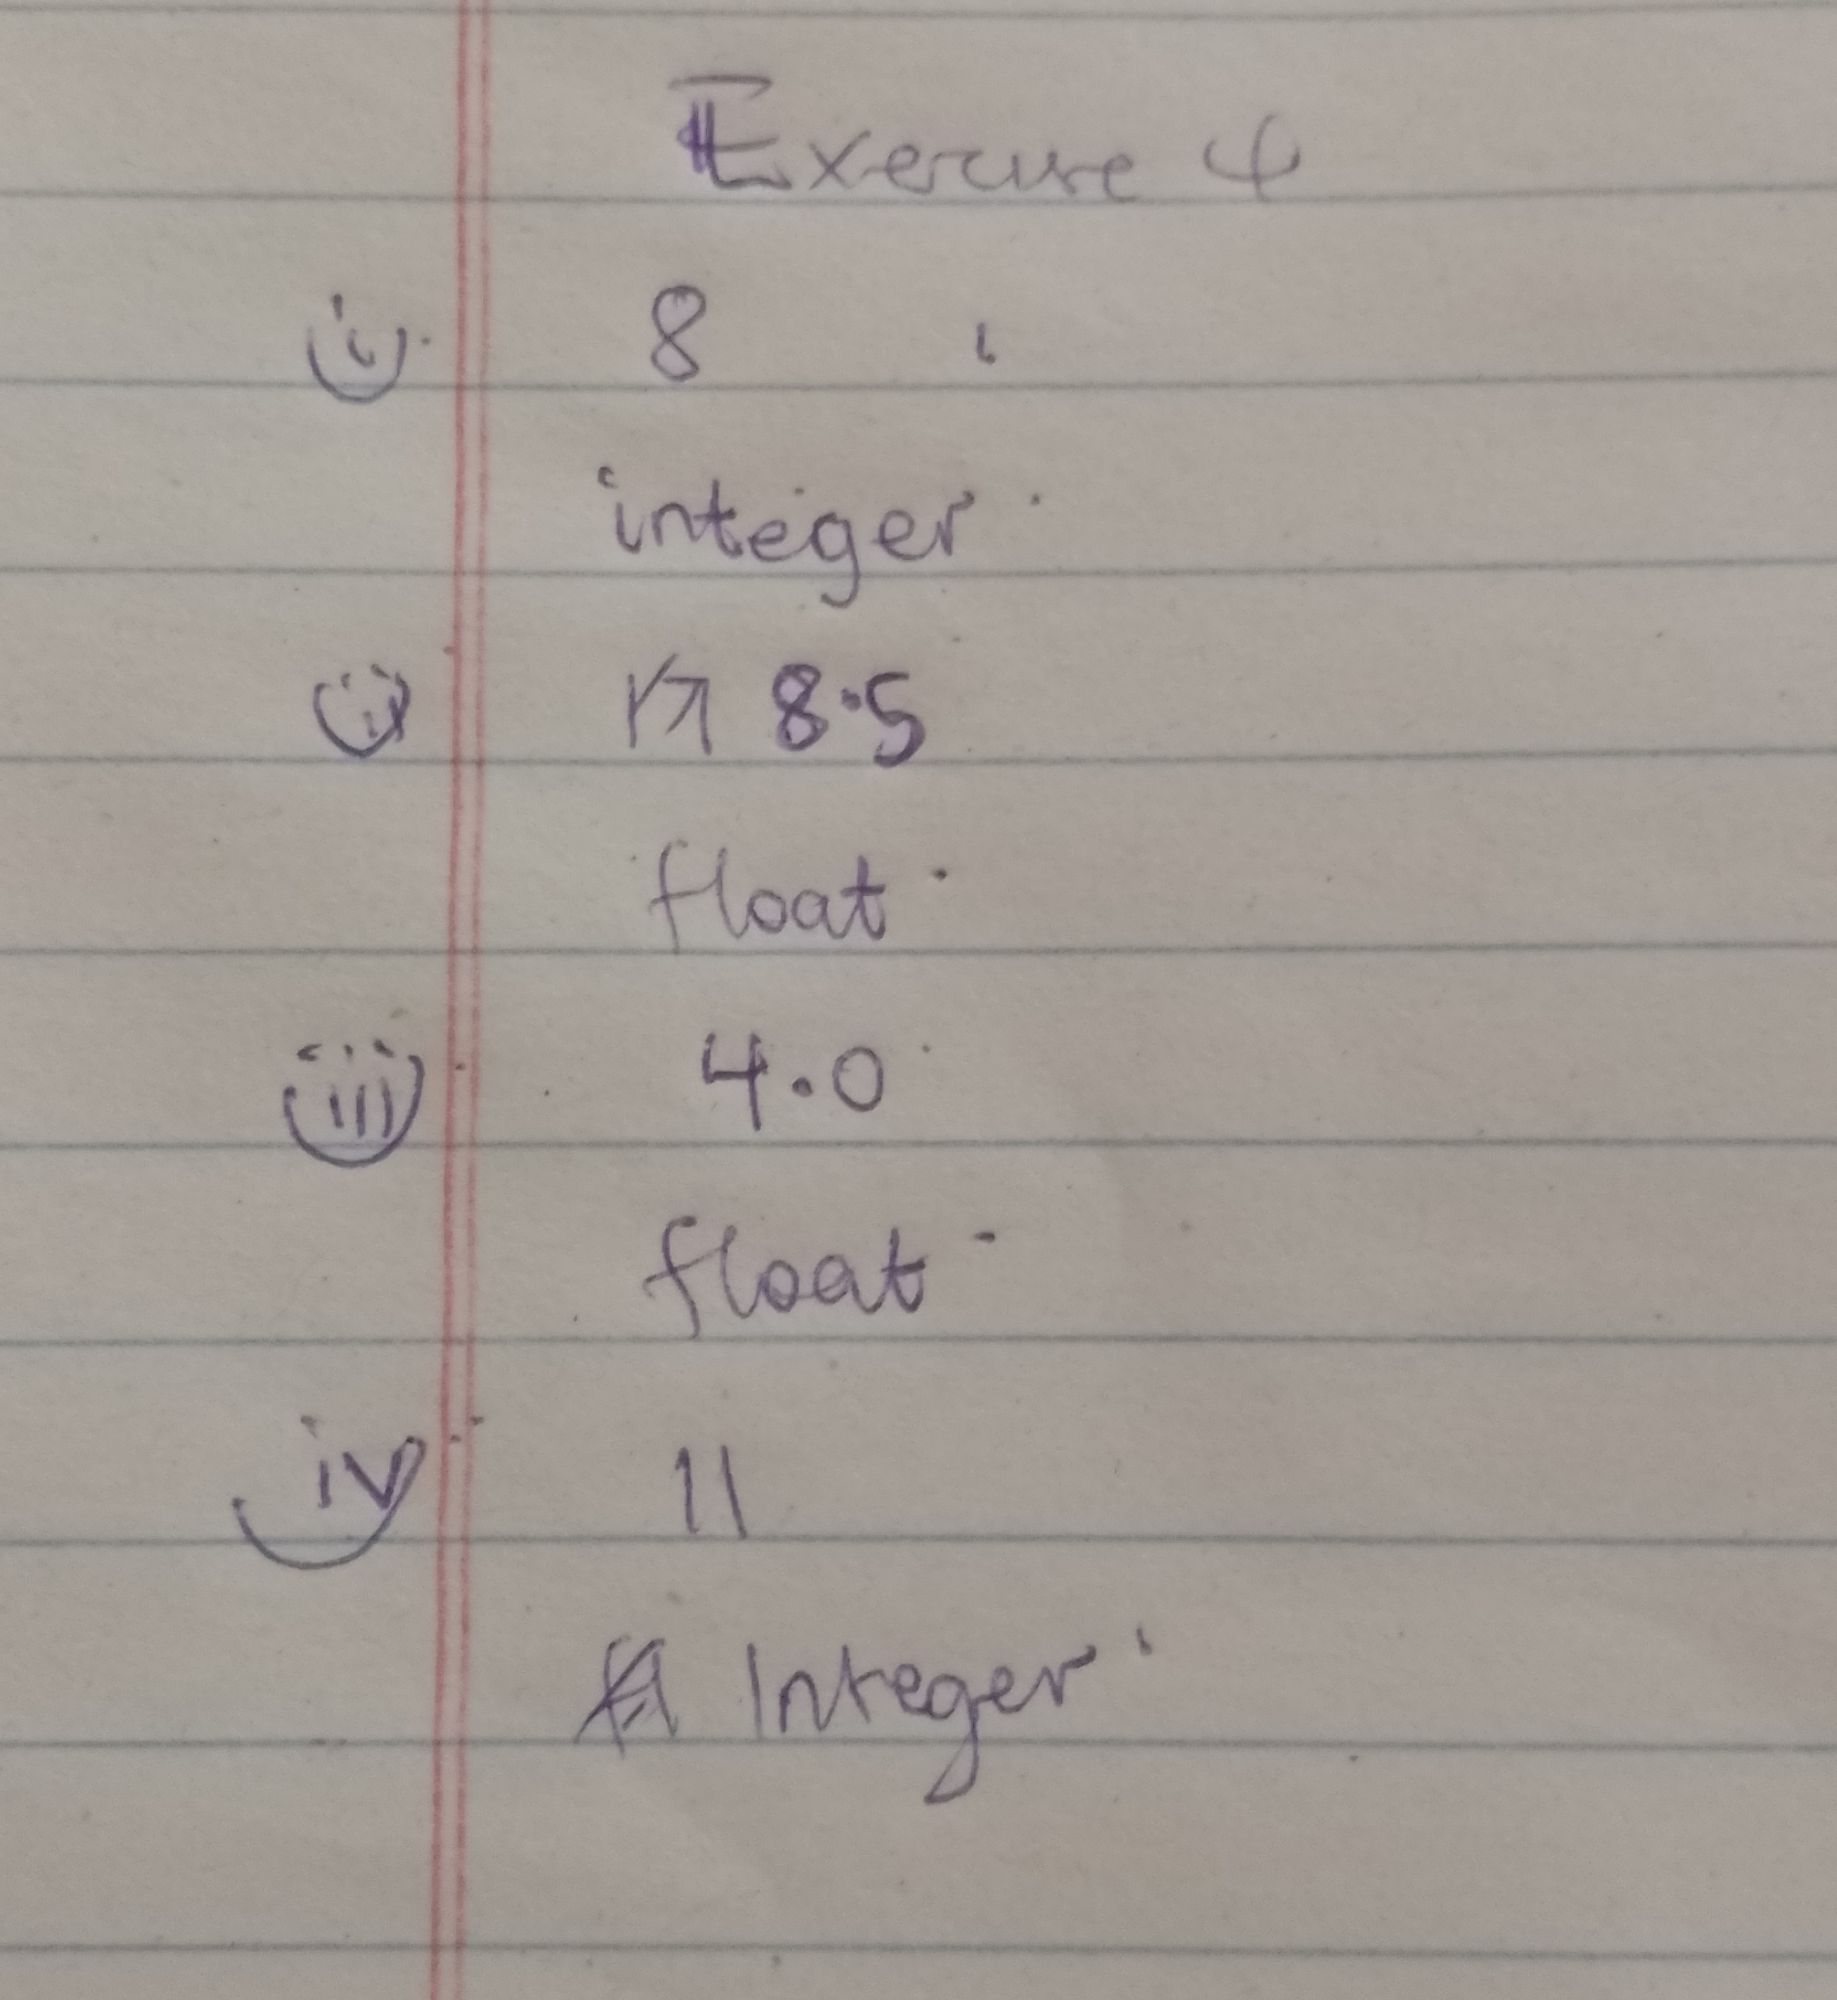 Exercise 4
i. 8
integer
ii 8.5
float
iii 4.0
float
iv 11
Integer